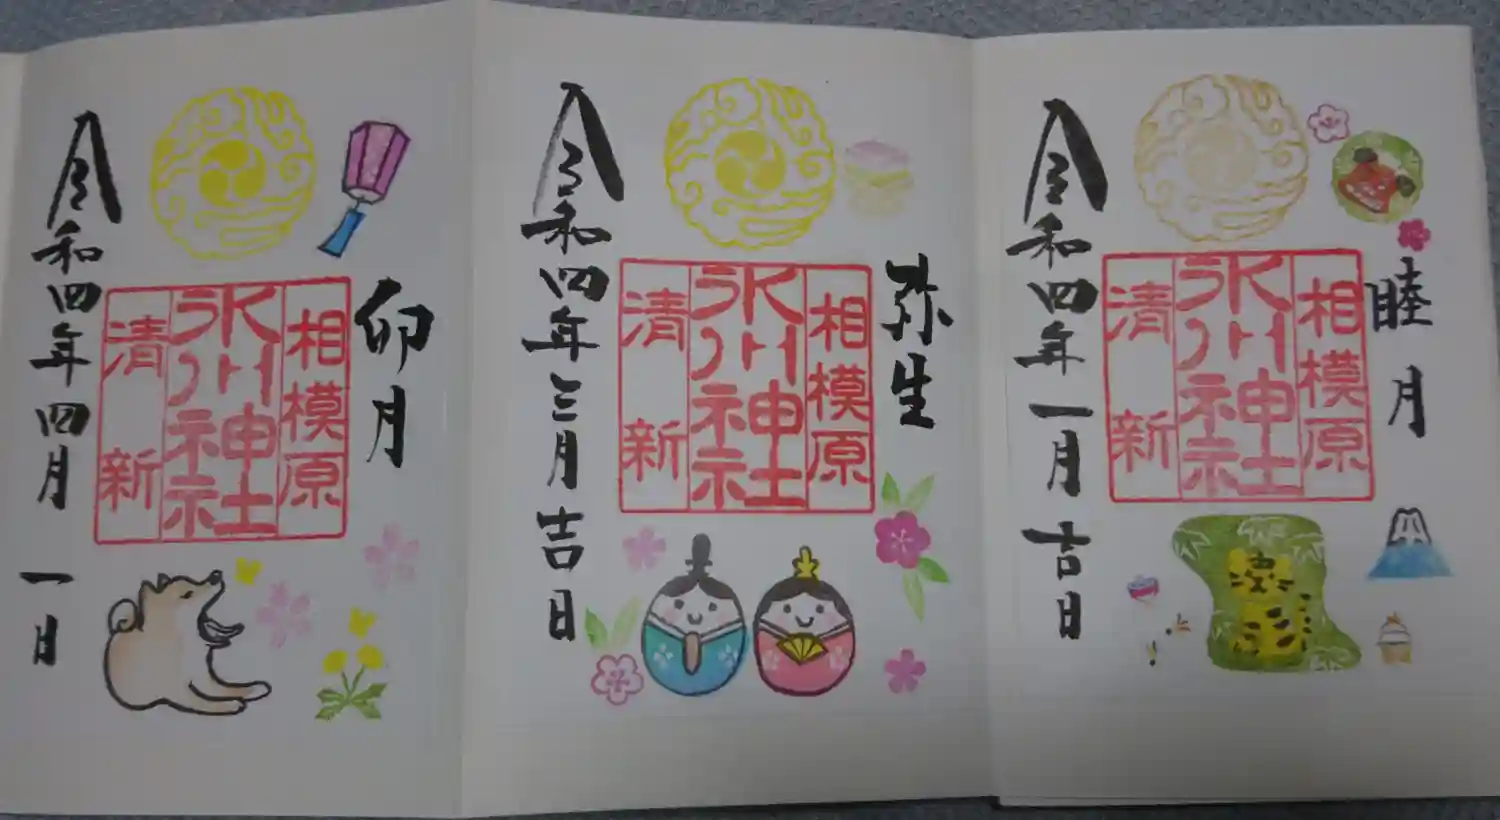 睦月
相模原
氷川神社
清新
令和四年一月吉日
弥生
相模原
氷川神社
清新
令和四年三月吉日
卯月
相模原
氷川神社
清新
令和四年四月一日